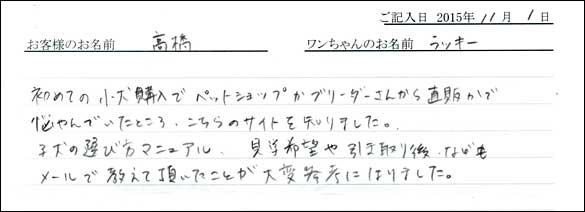 ご記入日 2015年 11月 1日
お客様のお名前 高橋 ワンちゃんのお名前 ラッキー
初めての小犬購入でペットショップかブリーダーさんから直販かで
悩やんでいたところ、こちらのサイトを知りました。
子犬の選び方マニュアル、見学希望や引き取り後、なども
メールで教えて頂いたことが大変参考になりました。